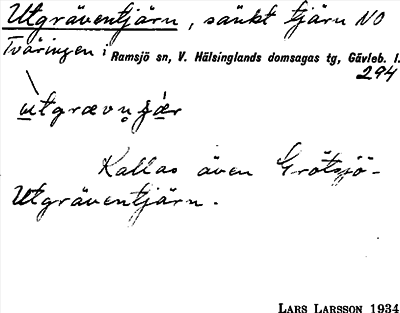 Utgräventjärn, sänkt tjärn NO
Tväringen i Ramsjö sn, V. Hälsinglands domsagas tg, Gävleb. l.
294
Kallas även Grötsjö-
Utgräventjärn.
LARS LARSSON 1934